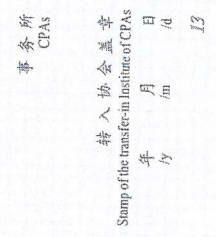 事 务 所
CPAs
转 入 协 会 盖 章
Stamp of the transfer-in Institute of CPAs
年 月 日
/y /m /d
13